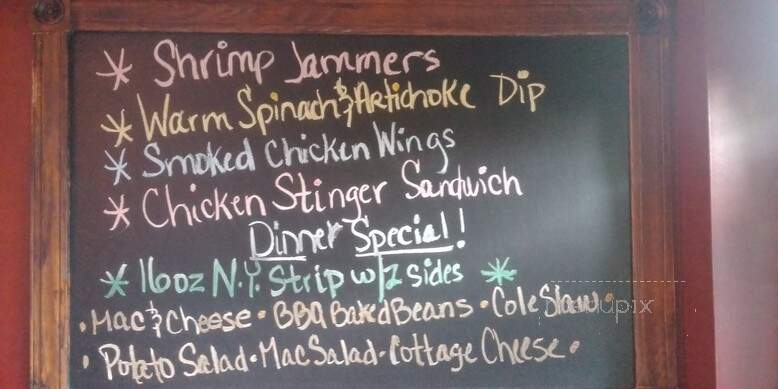 * Shrimp Jammers
* Warm Spinach & Artichoke Dip
* Smoked Chicken Wings
* Chicken Stinger Sandwich
Dinner Special!
* 16oz N.Y. Strip w/2 sides *
• Mac & Cheese • BBQ Baked Beans • Cole Slaw •
• Potato Salad • Mac Salad • Cottage Cheese •